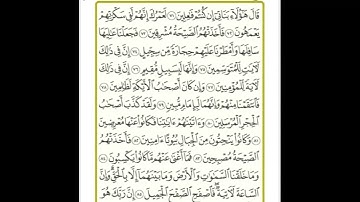 قَالَ هَٰٓؤُلَآءِ بَنَاتِىٓ إِن كُنتُمْ فَٰعِلِينَ ٧١ لَعَمْرُكَ إِنَّهُمْ لَفِى سَكْرَتِهِمْ
يَعْمَهُونَ ٧٢ فَأَخَذَتْهُمُ ٱلصَّيْحَةُ مُشْرِقِينَ ٧٣ فَجَعَلْنَا عَٰلِيَهَا
سَافِلَهَا وَأَمْطَرْنَا عَلَيْهِمْ حِجَارَةً مِّن سِجِّيلٍ ٧٤ إِنَّ فِى ذَٰلِكَ
لَءَايَٰتٍ لِّلْمُتَوَسِّمِينَ ٧٥ وَإِنَّهَا لَبِسَبِيلٍ مُّقِيمٍ ٧٦ إِنَّ فِى ذَٰلِكَ
لَءَايَةً لِّلْمُؤْمِنِينَ ٧٧ وَإِن كَانَ أَصْحَٰبُ ٱلْأَيْكَةِ لَظَٰلِمِينَ ٧٨
فَٱنتَقَمْنَا مِنْهُمْ وَإِنَّهُمَا لَبِإِمَامٍ مُّبِينٍ ٧٩ وَلَقَدْ كَذَّبَ أَصْحَٰبُ
ٱلْحِجْرِ ٱلْمُرْسَلِينَ ٨٠ وَءَاتَيْنَٰهُمْ ءَايَٰتِنَا فَكَانُوا۟ عَنْهَا مُعْرِضِينَ
٨١ وَكَانُوا۟ يَنْحِتُونَ مِنَ ٱلْجِبَالِ بُيُوتًا ءَامِنِينَ ٨٢ فَأَخَذَتْهُمُ
ٱلصَّيْحَةُ مُصْبِحِينَ ٨٣ فَمَآ أَغْنَىٰ عَنْهُم مَّا كَانُوا۟ يَكْسِبُونَ ٨٤
وَمَا خَلَقْنَا ٱلسَّمَٰوَٰتِ وَٱلْأَرْضَ وَمَا بَيْنَهُمَآ إِلَّا بِٱلْحَقِّ وَإِنَّ
ٱلسَّاعَةَ لَءَاتِيَةٌ فَٱصْفَحِ ٱلصَّفْحَ ٱلْجَمِيلَ ٨٥ إِنَّ رَبَّكَ هُوَ